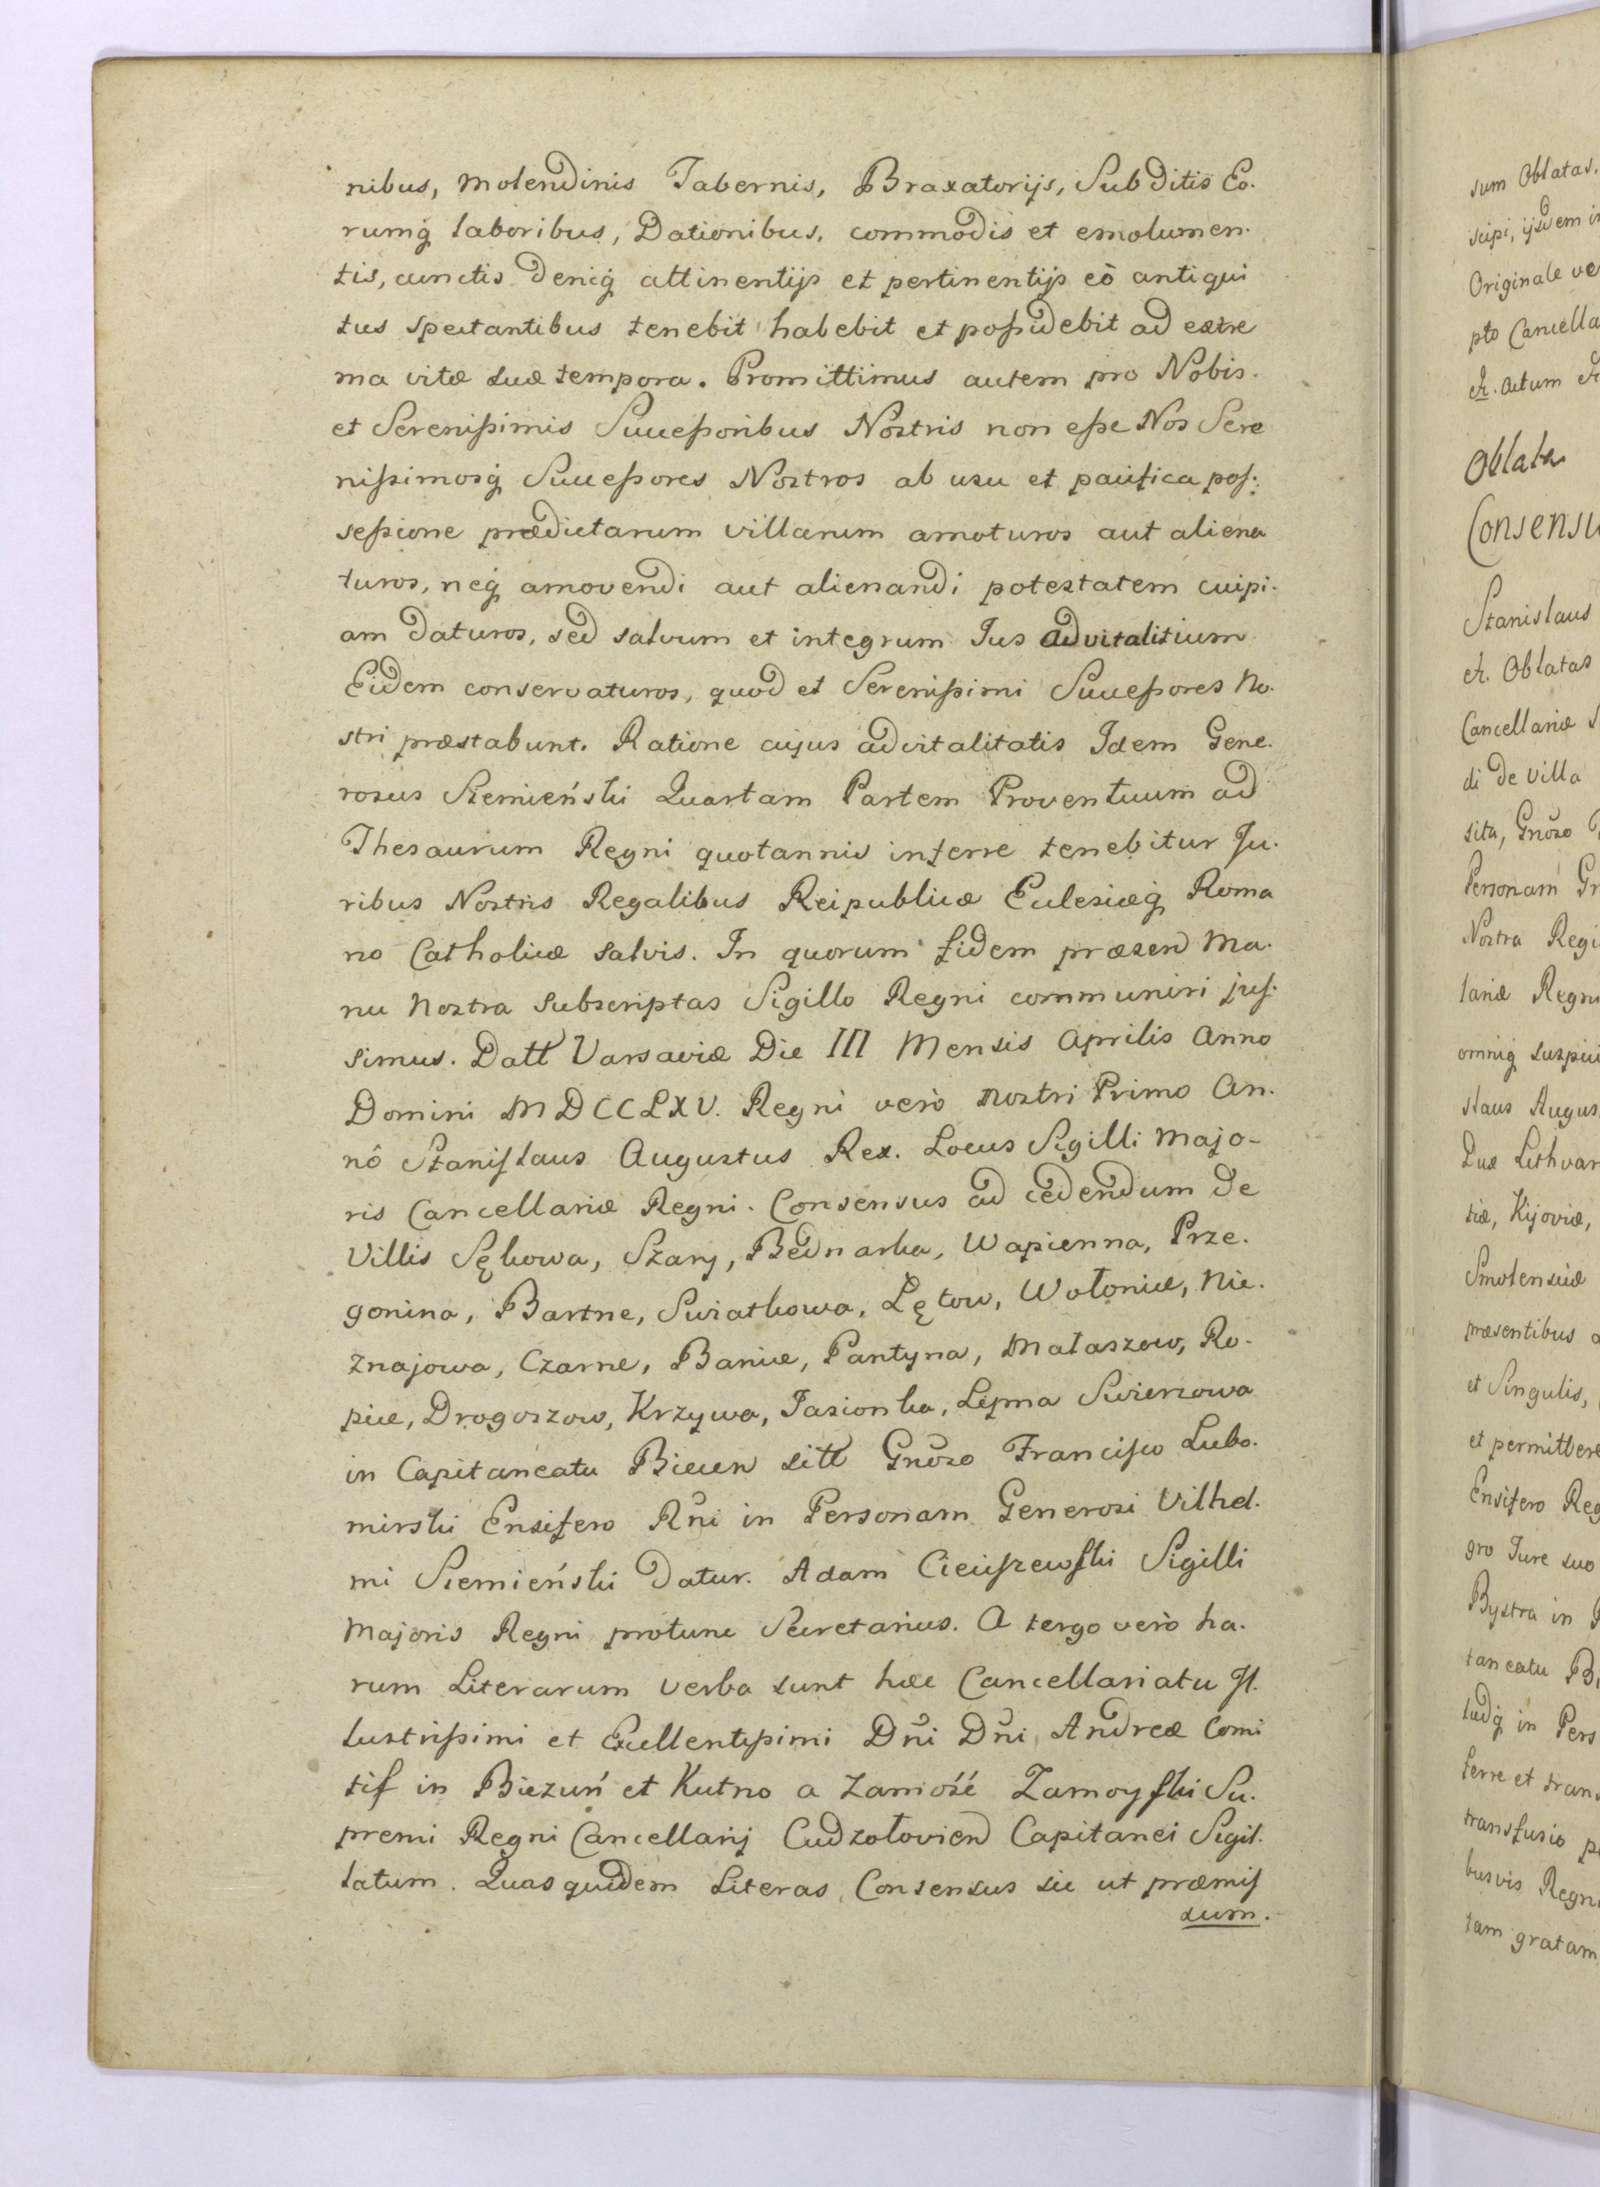 nibus, molendinis Tabernis, Braxatorijs, Subditis Eo-
rumq́ laboribus, Dationibus, commodis et emolumen-
tis, cunctis denicq́ attinentijs et pertinentijs eò antiqui
tus spectantibus tenebit habebit et poßidebit ad extre
ma vitæ suæ tempora. Promittimus autem pro Nobis
et Serenißimis Succeßoribus Nostris non eße Nos Sere
nißimosq́ Succeßores Nostros ab usu et pacifica pos-
seßione prædictarum villarum amoturos aut aliena
turos, neq́ amovendi aut alienandi potestatem cuipi-
am daturos, sed salvum et integrum Jus advitalitium
Eidem conservaturos, quod et Serenißimi Succeßores No-
stri præstabunt. Ratione cujus advitalitatis Idem Gene-
rosus Siemieński Quartam Partem Proventuum ad
Thesaurum Regni quotannis inferre tenebitur Ju-
ribus Nostris Regalibus Reipublicæ Eclesiæq́ Roma
no Catholicæ salvis. In quorum fidem præsen Ma-
nu Nostra subscriptas Sigillo Regni communiri jus-
simus. Datt Varsaviæ Die III Mensis Aprilis Anno
Domini MDCCLXV. Regni verò nostri Primo An-
nô Stanislaus Augustus Rex. Locus Sigilli Majo-
ris Cancellariæ Regni. Consensus ad cedendum de
Villis Sękowa, Szarj, Bednarka, Wapienna, Prze-
gonina, Bartne, Swiatkowa, Lętow, Wołowice, Nie-
znajowa, Czarne, Banice, Pantyna, Małaszow, Ro-
pice, Drogoszow, Krzywa, Jasionka, Lipna Swierzowa
in Capitaneatu Biecen sitt Gnõso Francisco Lubo-
mirski Ensifero Rñi in Personam Generosi Vilhel-
mi Siemieński datur. Adam Cieciszewski Sigilli
Majoris Regni protunc Secretarius. A tergo verò ha-
rum Literarum verba sunt hæc Cancellariatu Il-
lustrißimi et Excellentißimi Dñi Dñi Andreæ Comi
tis in Biezuń et Kutno a Zamość Zamoyski Su-
premi Regni Cancellarij Cudzołovien Capitanei Sigil-
latum. Quas quidem Literas Consensus sic ut præmis
sum.
sum Oblatas.
scipi, ijsdem
Originale
pto Cancella
et. Actum
Oblata
Consensu
Stanislaus
et. Oblatas
Cancellariæ
di de villa
sita, Gnõso
Personam
Nostra Regi
lariæ Regni
omniq́ suspici
slaus Augus
Dux Lithvan
siæ, Kijoviæ,
Smolensciæ
præsentibus
et Singulis,
et permittere
Ensifero Reg
gro Jure suo
Bystra in
taneatu
ludq́ in Pers
ferre et trans
transfusio
busvis Regni
tam gratam